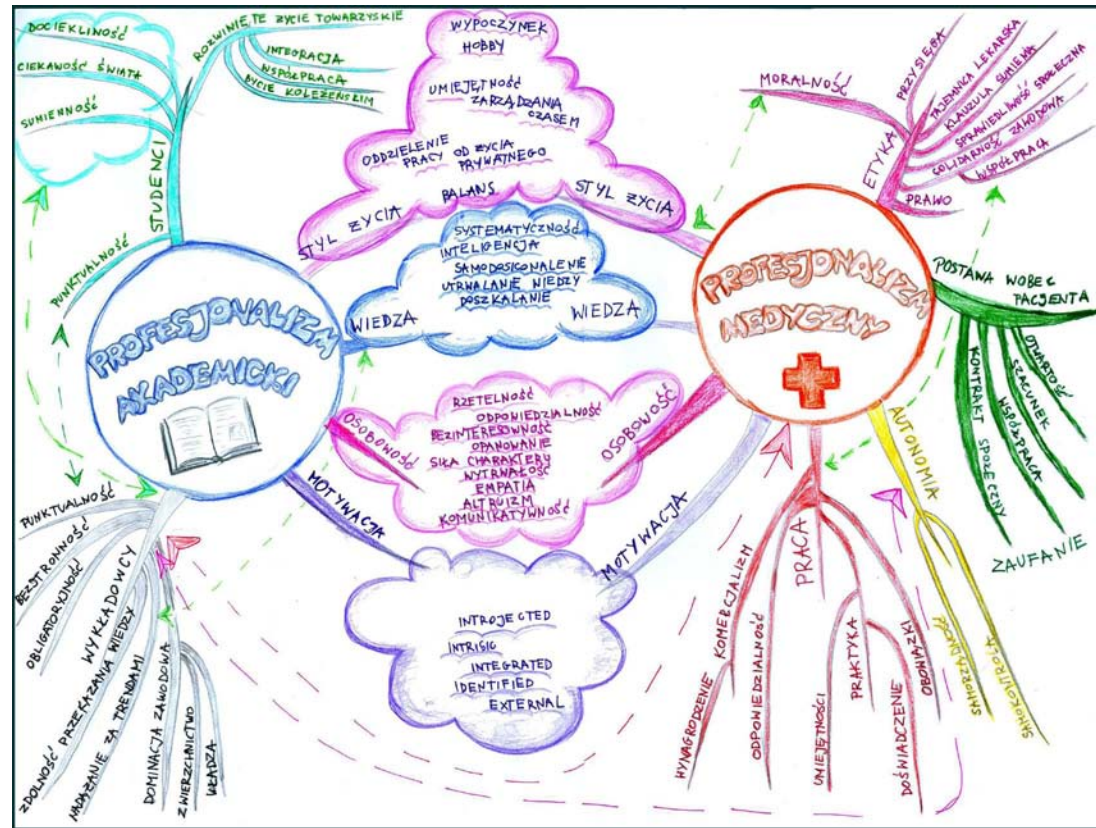 DOCIEKLIWOŚĆ
CIEKAWOŚĆ ŚWIATA
SUMIENNOŚĆ
STUDENCI
PUNKTUALNOŚĆ
ROZWINIĘTE ŻYCIE TOWARZYSKIE
INTEGRACJA
WSPÓŁPRACA
BYCIE KOLEŻEŃSKIM
PROFESJONALIZM
AKADEMICKI
WYPOCZYNEK
HOBBY
UMIEJĘTNOŚĆ
ZARZĄDZANIA
CZASEM
ODDZIELENIE
PRACY OD ŻYCIA
PRYWATNEGO
BALANS
STYL ŻYCIA
STYL ŻYCIA
SYSTEMATYCZNOŚĆ
INTELIGENCJA
SAMODOSKONALENIE
UTRWALANIE WIEDZY
DOSZKALANIE
WIEDZA
WIEDZA
OSOBOWOŚĆ
OSOBOWOŚĆ
RZETELNOŚĆ
ODPOWIEDZIALNOŚĆ
BEZINTERESOWNOŚĆ
OPANOWANIE
SIŁA CHARAKTERU
WYTRWAŁOŚĆ
EMPATIA
ALTRUIZM
KOMUNIKATYWNOŚĆ
MOTYWACJA
MOTYWACJA
INTROJECTED
INTRISIC
INTEGRATED
IDENTIFIED
EXTERNAL
PUNKTUALNOŚĆ
BEZSTRONNOŚĆ
OBLIGATORYJNOŚĆ
WYKŁADOWCY
ZDOLNOŚĆ PRZEKAZANIA WIEDZY
NADĄŻANIE ZA TRENDAMI
DOMINACJA ZAWODOWA
ZWIERZCHNICTWO
WŁADZA
PROFESJONALIZM
MEDYCZNY
MORALNOŚĆ
ETYKA
PRZYSIĘGA
TAJEMNICA LEKARSKA
KLAUZULA SUMIENIA
SPRAWIEDLIWOŚĆ SPOŁECZNA
SOLIDARNOŚĆ ZAWODOWA
WSPÓŁPRACA
PRAWO
POSTAWA WOBEC
PACJENTA
OTWARTOŚĆ
SZACUNEK
WSPÓŁPRACA
KONTRAKT SPOŁECZNY
ZAUFANIE
AUTONOMIA
SAMORZĄDNOŚĆ
SAMOKONTROLA
PRACA
KOMERCJALIZM
WYNAGRODZENIE
ODPOWIEDZIALNOŚĆ
PRAKTYKA
UMIEJĘTNOŚCI
DOŚWIADCZENIE
OBOWIĄZKI